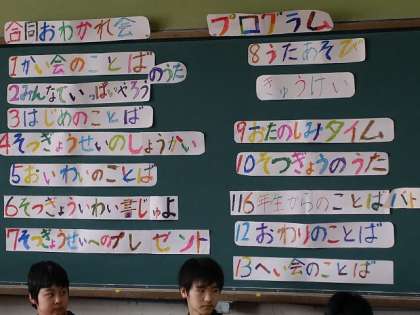 合同おわかれ会
プログラム
1かい会のことば
2みんなでいっぱいやろうのうた
3はじめのことば
4そつぎょうせいのしょうかい
5おいわいのことば
6そつぎょういわい書じゅよ
7そつぎょうせいへのプレゼント
8うたあそび
きゅうけい
9おたのしみタイム
10そつぎょうのうた
116年生からのことばバト
12おわりのことば
13へい会のことば